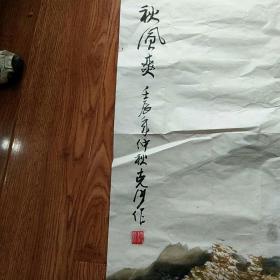 秋风爽
壬辰年仲秋克河作